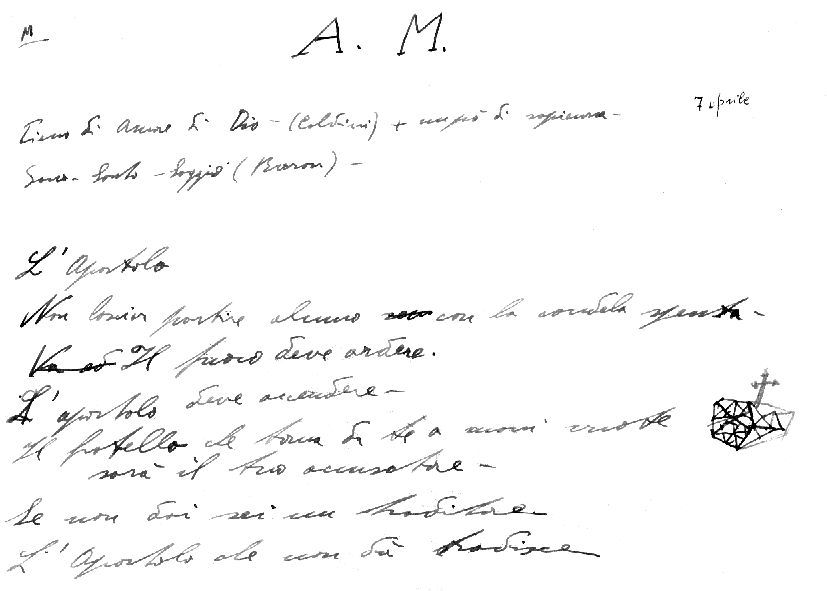 M
A. M.
7 aprile
di Amore di Dio - ( ) + un po' di sapienza -
- Santo - Saggio ( ) -
L'Apostolo
Non lasciar partire alcuno con la candela spenta -
Il fuoco deve ardere.
L'apostolo deve accendere -
Il fratello che torna da te a mani vuote
sarà il tuo accusatore -
Se non dai sei un traditore
L'Apostolo che non dà tradisce